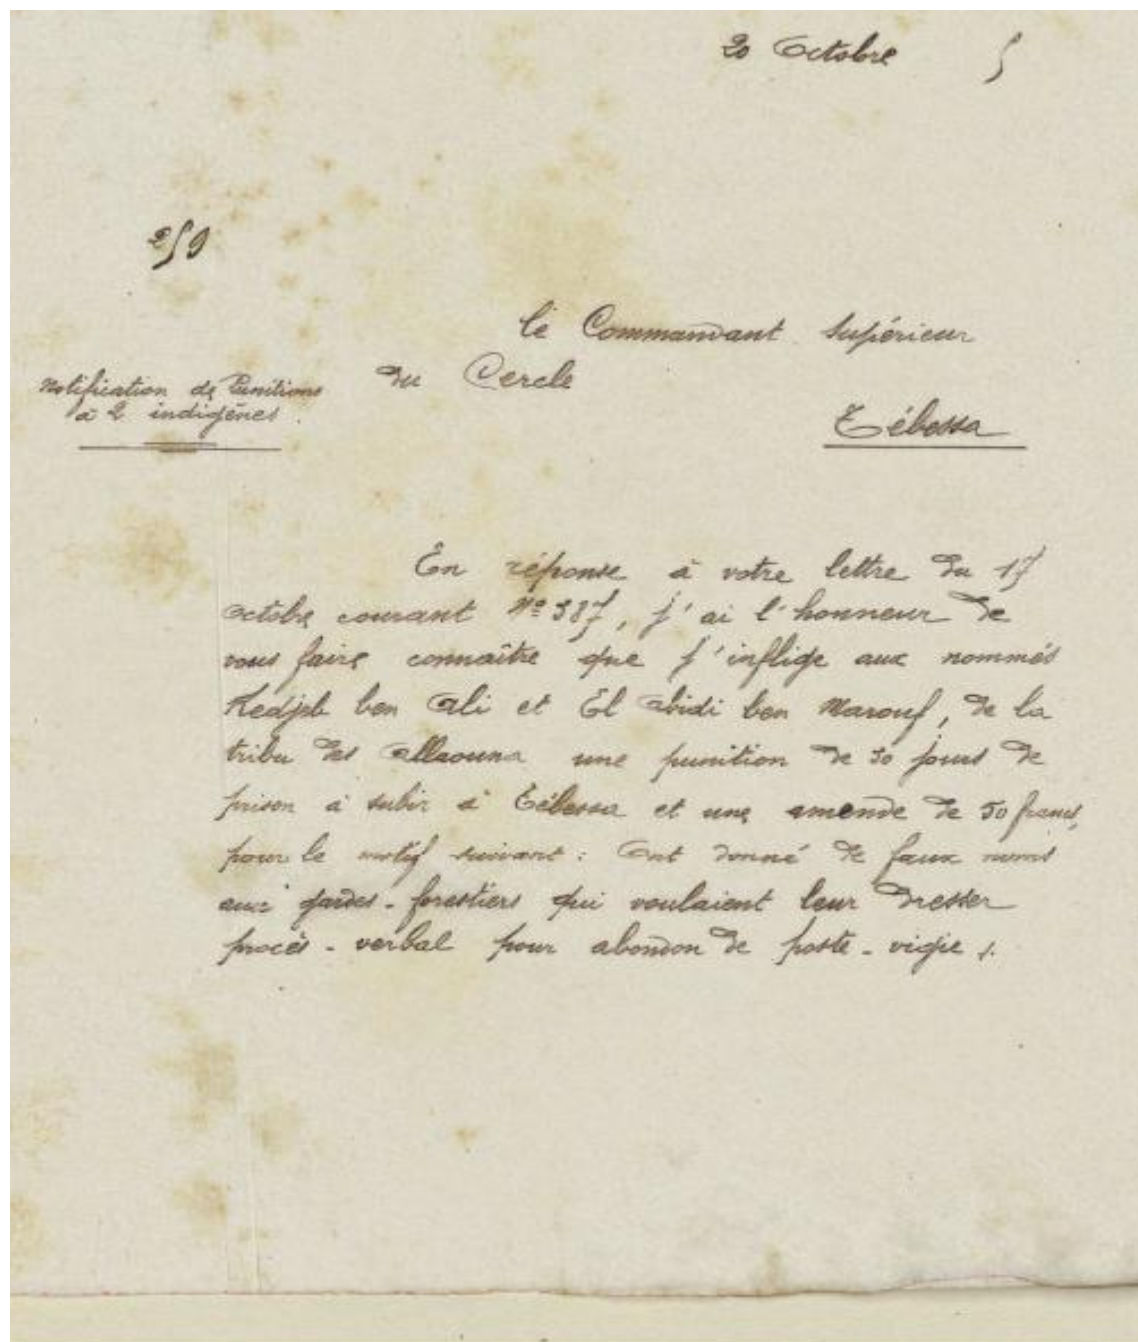 20 Octobre 5
259
Le Commandant Supérieur
du Cercle
Notification de Punitions
à 2 indigènes.
Tébessa
En réponse à votre lettre du 17
octobre courant Nº 387, j'ai l'honneur de
vous faire connaître que j'inflige aux nommés
Redjeb ben Ali et El Abidi ben Marouf, de la
tribu des Allaouna une punition de 30 jours de
prison à subir à Tébessa et une amende de 50 francs,
pour le motif suivant : Ont donné de faux noms
aux gardes-forestiers qui voulaient leur dresser
procès-verbal pour abandon de poste-vigie ./.